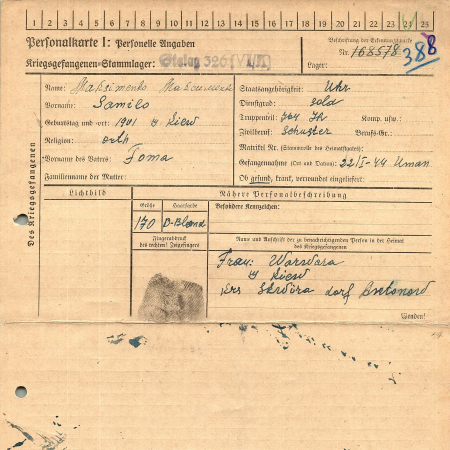 1 2 3 4 5 6 7 8 9 10 11 12 13 14 15 16 17 18 19 20 21 22 23 24 25
Personalkarte I: Personelle Angaben
Beschriftung der Erkennungsmarke
Nr. 168578
388
Kriegsgefangenen-Stammlager: Stalag 326 (VI/K)
Lager:
Des Kriegsgefangenen
Name: Maksimenko
Vorname: Samilo
Geburtstag und -ort: 1901 g Kiew
Religion: orth
Vorname des Vaters: Foma
Familienname der Mutter:
Staatsangehörigkeit: Ukr
Dienstgrad: sold
Truppenteil: 704 Ih Komp. usw.:
Zivilberuf: Schuster Berufs-Gr.:
Matrikel Nr. (Stammrolle des Heimatstaates):
Gefangennahme (Ort und Datum): 22/I-44 Uman
Ob gesund, krank, verwundet eingeliefert:
Lichtbild
Nähere Personalbeschreibung
Größe
Haarfarbe
Besondere Kennzeichen:
170
D-Blond
Fingerabdruck
des rechten! Zeigefingers
Name und Anschrift der zu benachrichtigenden Person in der Heimat
des Kriegsgefangenen
Frau: Warwara
g Kiew
Skwira dorf
Wenden!